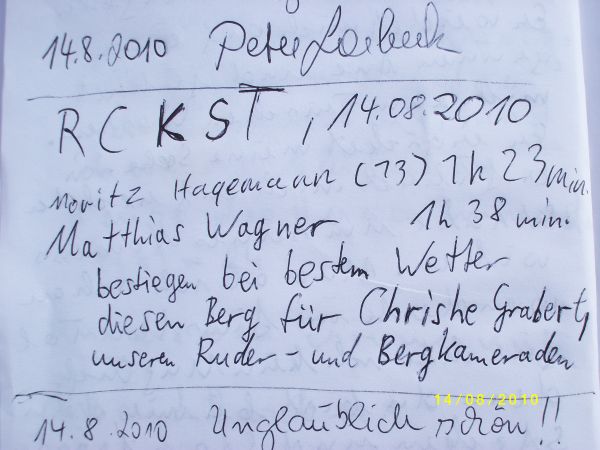 14.8.2010 Peter
RCKST, 14.08.2010
Moritz Hagemann (13) 1h 23min.
Matthias Wagner 1h 38 min.
bestiegen bei bestem Wetter
diesen Berg für Grabert,
unseren Ruder- und Bergkameraden
14/08/2010
14.8.2010 Unglaublich schön!!